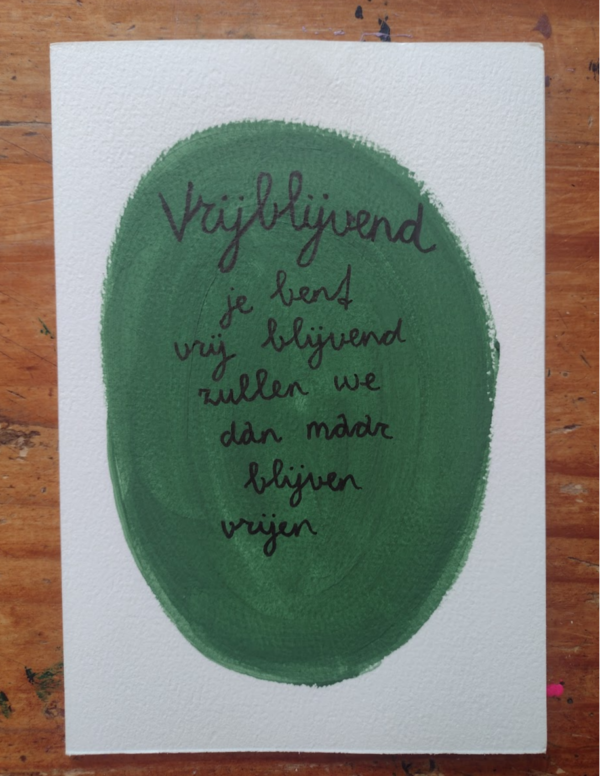 Vrijblijvend
je bent
vrij blijvend
zullen we
dan maar
blijven
vrijen